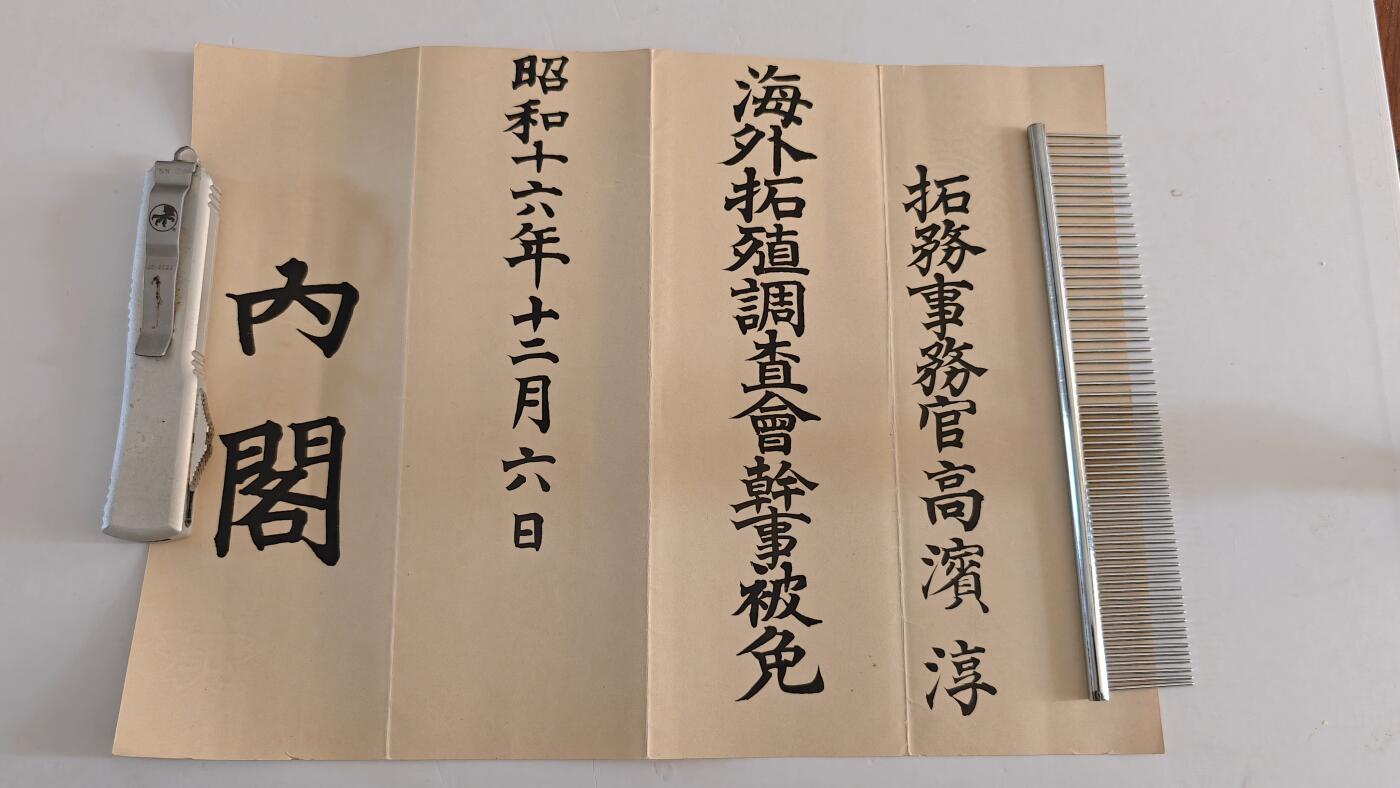 拓務事務官高濱淳
海外拓殖調査會幹事被免
昭和十六年十二月六日
內閣